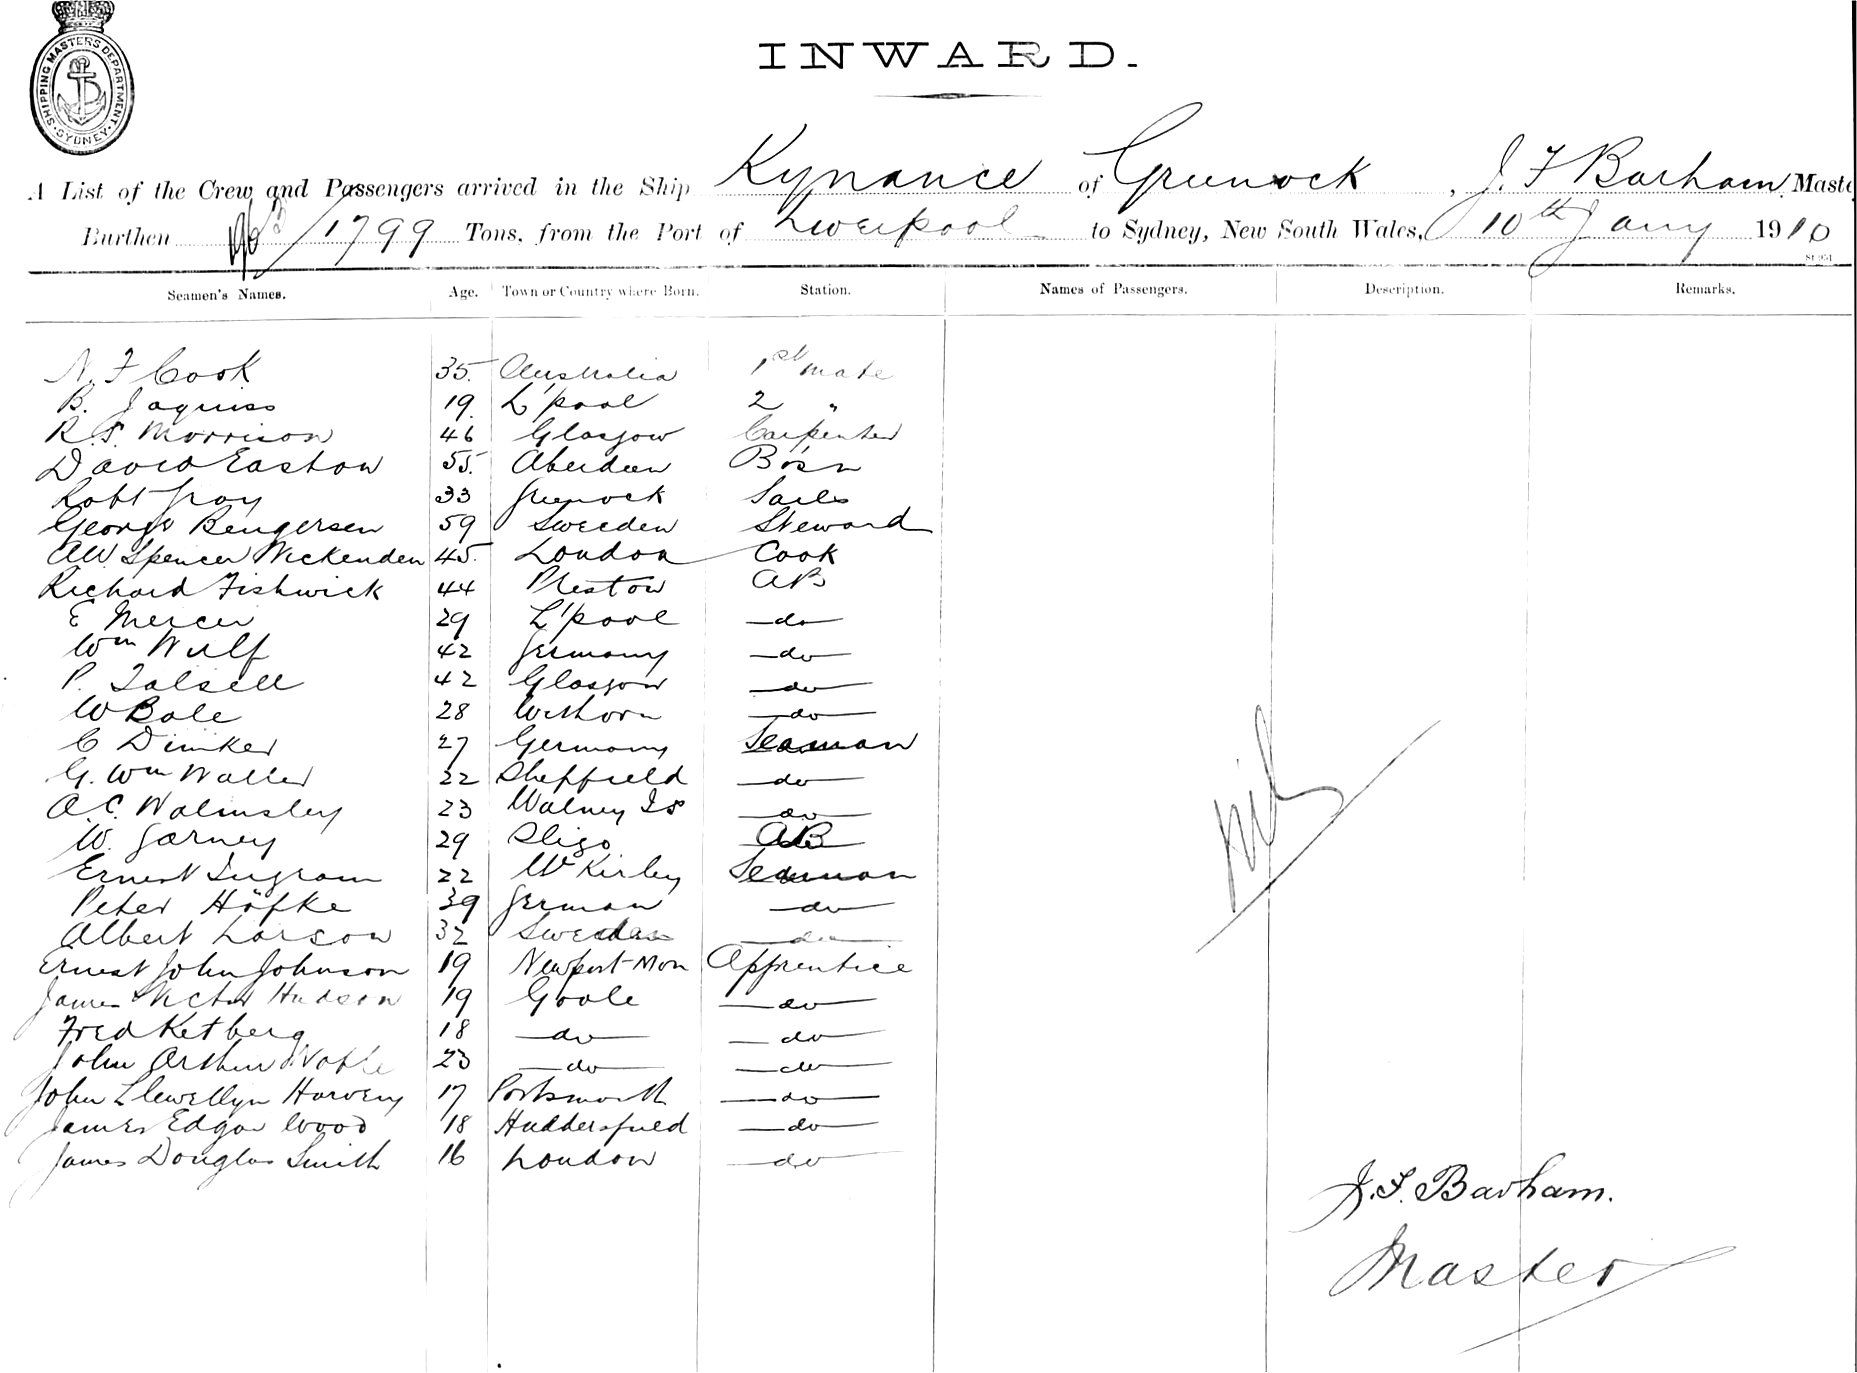 SHIPPING MASTERS DEPARTMENT · SYDNEY ·
INWARD.
A List of the Crew and Passengers arrived in the Ship Kynance of Greenock, J. F Barham Maste
Burthen 1799 Tons, from the Port of Liverpool to Sydney, New South Wales, 10th Jany 1910
Seamen's Names. Age. Town or Country where Born. Station. Names of Passengers. Description. Remarks.
N. F Cook 35. Australia 1st mate
B. Jaquiss 19. L'pool 2 "
R. S. Morrison 46 Glasgow Carpenter
David Easton 55. Aberdeen Bosn
Robt Gray 33 Greenock Sails
George Bengersen 59 Sweeden Steward
AW Spencer Wickenden 45. London Cook
Richard Fishwick 44 Preston AB
E Mercer 29 L'pool do
Wm Wulf 42 Germany do
P. Talsell 42 Glasgow do
W Bale 28 do
C Dimker 27 Germany Seaman
G. Wm Waller 22 Sheffield do
A. C. Walmsley 23 Walney Is do
W. Garney 29 Sligo AB
Ernest Ingram 22 W Kirby Seaman
Peter Höfke 39 German do
Albert Larson 32 Sweden do
Ernest John Johnson 19 Newport Mon Apprentice
James Victor Hudson 19 Goole do
Fred Ketberg 18 do do
John Arthur Noble 23 do do
John Llewellyn Harvey 17 Portsmouth do
James Edgar Wood 18 Huddersfield do
James Douglas Smith 16 London do
Nil
J. F. Barham.
Master